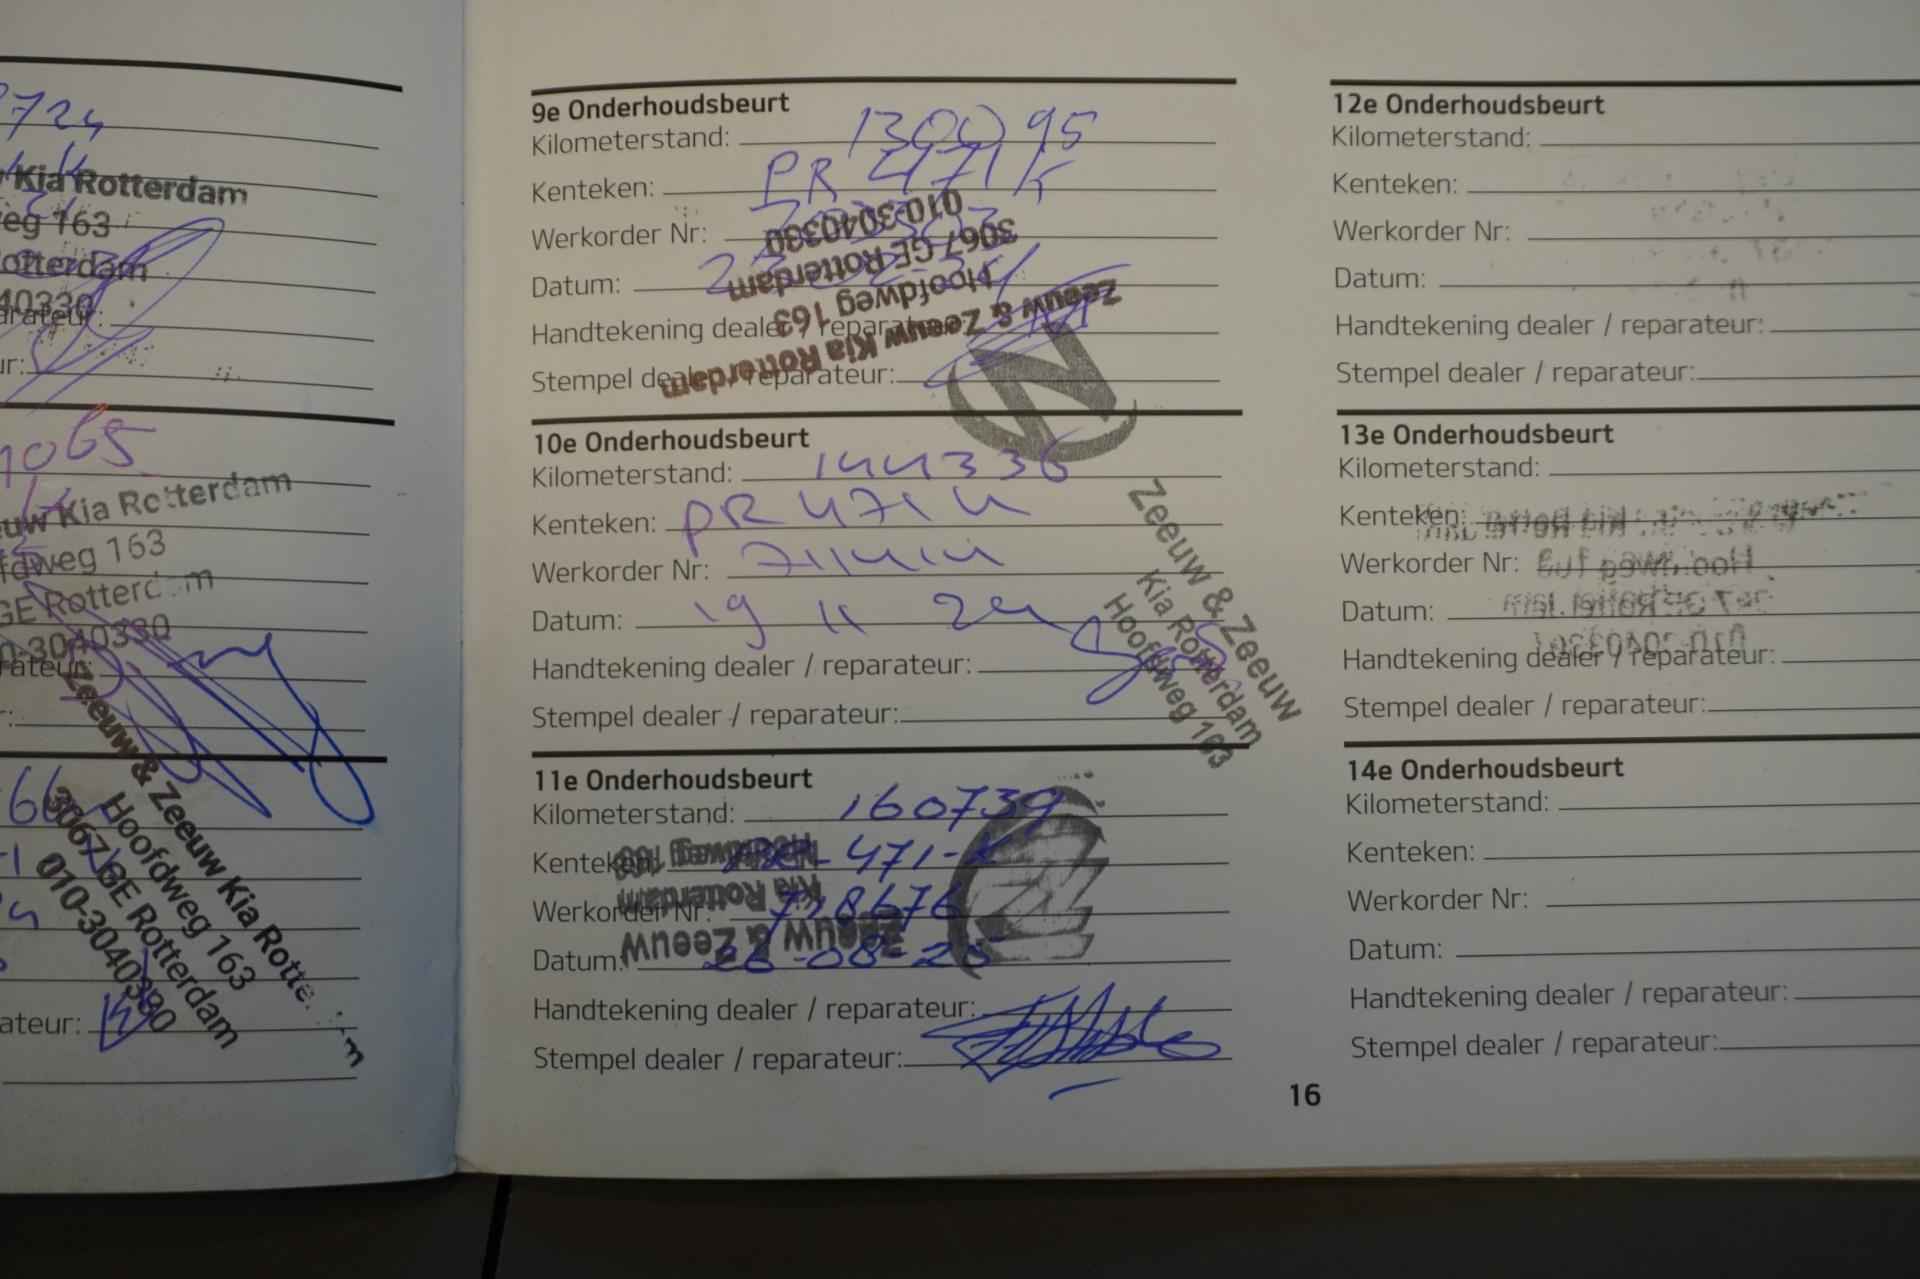 724
Kia Rotterdam
eg 163
otterdam
40330
arateur:
ur:
1065
euw Kia Rotterdam
fdweg 163
GE Rotterd m
0-3040330
rateur:
Zeeuw & Zeeuw Kia Rotte
Hoofdweg 163
3067 GE Rotterdam
010-3040330
ateur:
9e Onderhoudsbeurt
Kilometerstand: 130095
Kenteken: PR 471 K
Werkorder Nr:
Datum:
Handtekening dealer / reparateur:
Stempel dealer / reparateur:
Zeeuw & Zeeuw Kia Rotterdam
Hoofdweg 163
3067 GE Rotterdam
010-3040330
10e Onderhoudsbeurt
Kilometerstand: 144336
Kenteken: PR 471 K
Werkorder Nr:
Datum: 19 11 24
Handtekening dealer / reparateur:
Stempel dealer / reparateur:
Zeeuw & Zeeuw
Kia Rotterdam
Hoofdweg 163
11e Onderhoudsbeurt
Kilometerstand: 160739
Kenteken: PR-471-K
Werkorder Nr: 728676
Datum: 26-08-25
Handtekening dealer / reparateur:
Stempel dealer / reparateur:
Zeeuw & Zeeuw
Kia Rotterdam
Hoofdweg 163
12e Onderhoudsbeurt
Kilometerstand:
Kenteken:
Werkorder Nr:
Datum:
Handtekening dealer / reparateur:
Stempel dealer / reparateur:
13e Onderhoudsbeurt
Kilometerstand:
Kenteken:
Werkorder Nr:
Datum:
Handtekening dealer / reparateur:
Stempel dealer / reparateur:
14e Onderhoudsbeurt
Kilometerstand:
Kenteken:
Werkorder Nr:
Datum:
Handtekening dealer / reparateur:
Stempel dealer / reparateur:
16